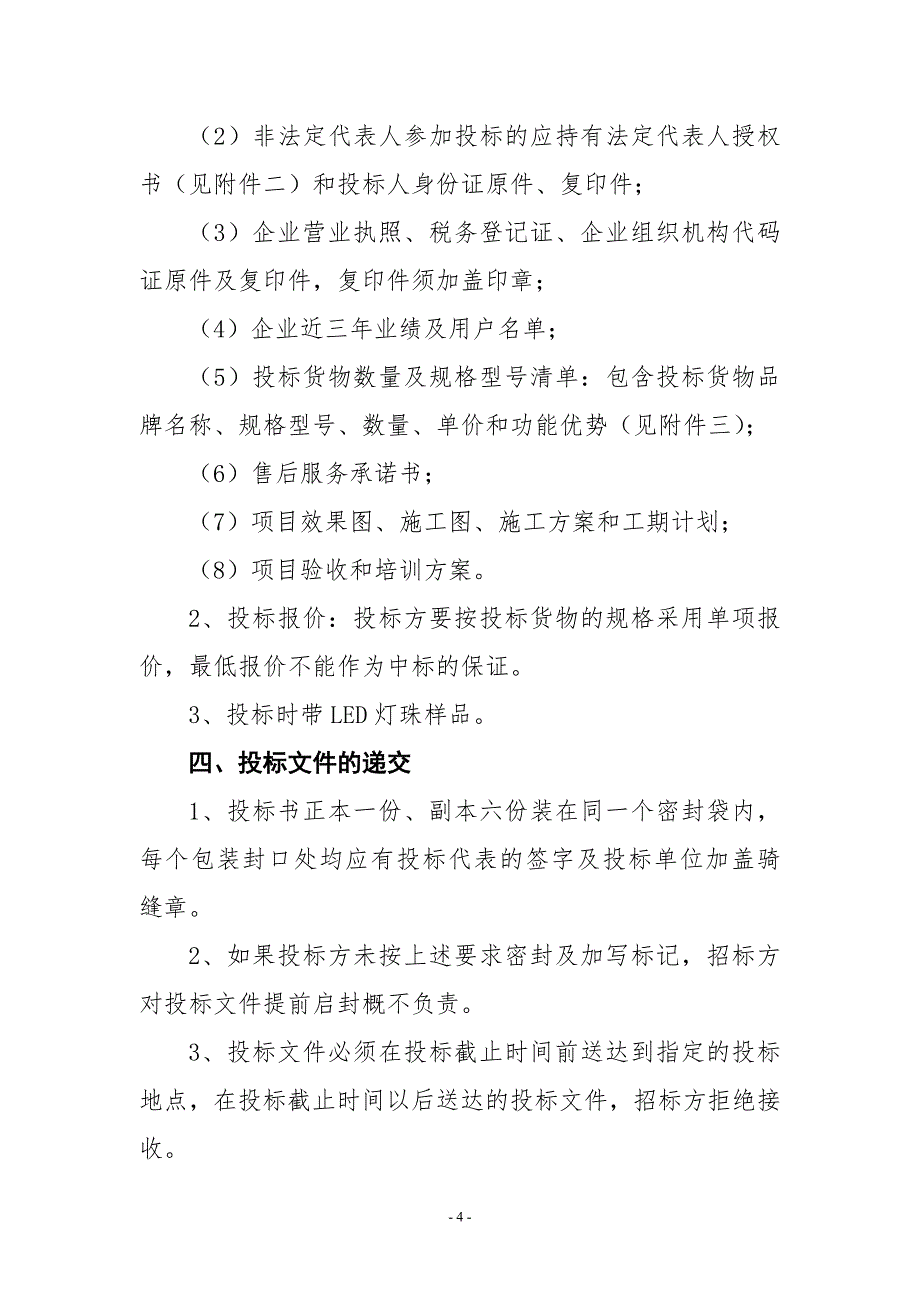 （2）非法定代表人参加投标的应持有法定代表人授权
书（见附件二）和投标人身份证原件、复印件；
（3）企业营业执照、税务登记证、企业组织机构代码
证原件及复印件，复印件须加盖印章；
（4）企业近三年业绩及用户名单；
（5）投标货物数量及规格型号清单：包含投标货物品
牌名称、规格型号、数量、单价和功能优势（见附件三）；
（6）售后服务承诺书；
（7）项目效果图、施工图、施工方案和工期计划；
（8）项目验收和培训方案。
2、投标报价：投标方要按投标货物的规格采用单项报
价，最低报价不能作为中标的保证。
3、投标时带 LED 灯珠样品。
四、投标文件的递交
1、投标书正本一份、副本六份装在同一个密封袋内，
每个包装封口处均应有投标代表的签字及投标单位加盖骑
缝章。
2、如果投标方未按上述要求密封及加写标记，招标方
对投标文件提前启封概不负责。
3、投标文件必须在投标截止时间前送达到指定的投标
地点，在投标截止时间以后送达的投标文件，招标方拒绝接
收。
- 4 -